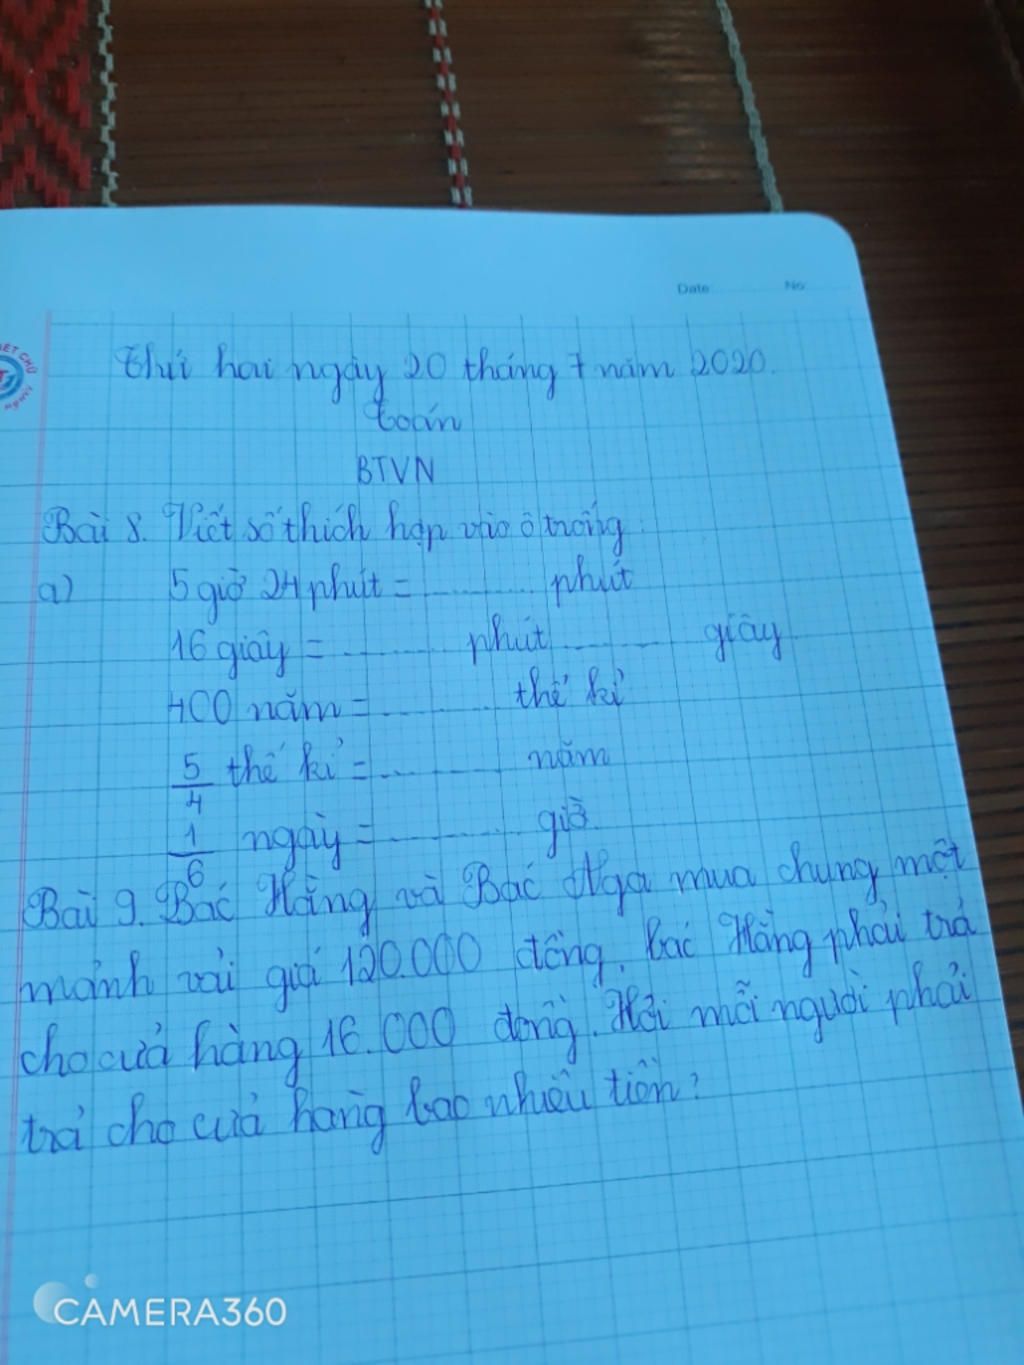 Date No
Thứ hai ngày 20 tháng 7 năm 2020.
Toán
BTVN
Bài 8. Viết số thích hợp vào ô trống
a) 5 giờ 24 phút = ........... phút
16 giây = ........... phút ........... giây
400 năm = ........... thế kỉ
5/4 thế kỉ = ........... năm
1/6 ngày = ........... giờ.
Bài 9. Bác Hằng và Bác Nga mua chung một
mảnh vải giá 120.000 đồng. bác Hằng phải trả
cho cửa hàng 16.000 đồng. Hỏi mỗi người phải
trả cho cửa hàng bao nhiêu tiền?
CAMERA360